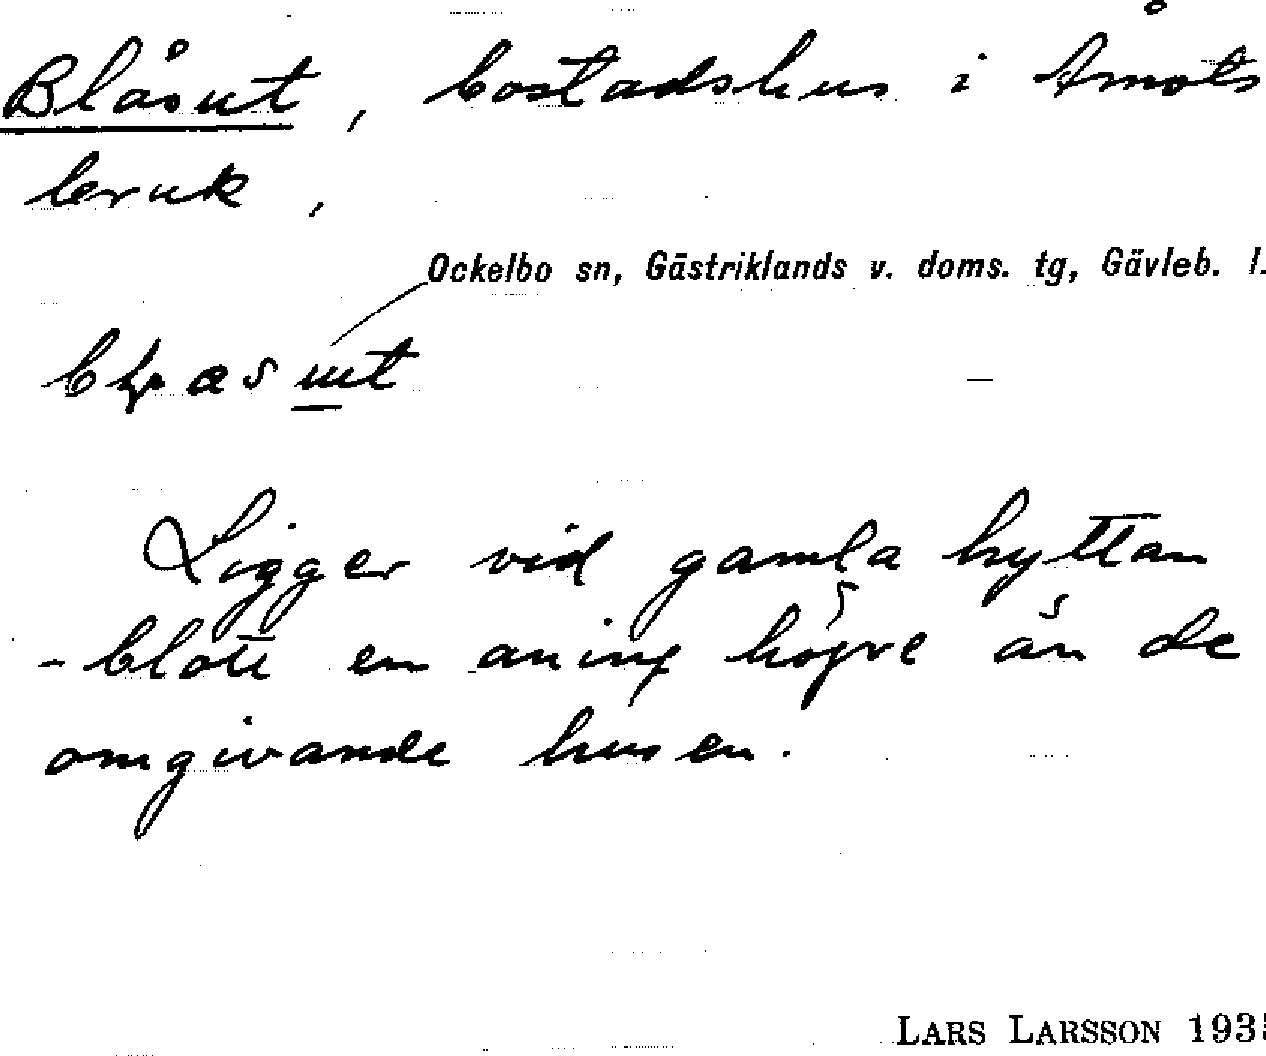 Blåsut, bostadshus i Åmots
bruk,
Ockelbo sn, Gästriklands v. doms. tg, Gävleb. l.
Ligger vid gamla hyttan
- blott en aning högre än de
omgivande husen.
LARS LARSSON 193